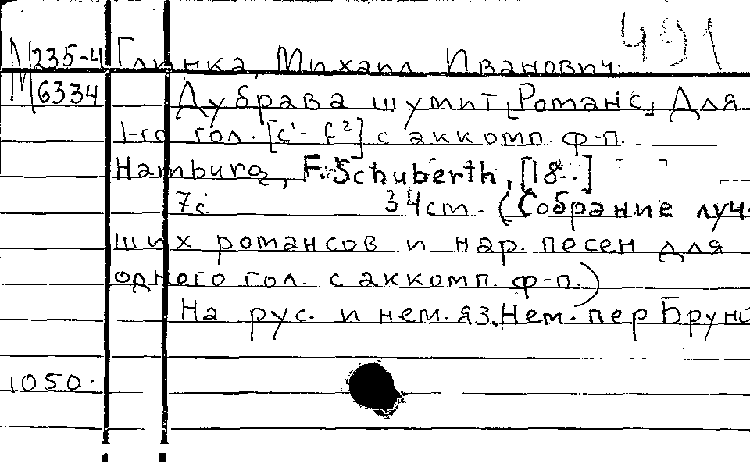 491
М235-4 Глинка, Михаил Иванович.
М6334 Дубрава шумит [Романс] Для
1-го гол. [c¹- f²] с аккомп. ф-п.
Hamburg, F. Schuberth, [18..]
7с 34cm. (Собрание луч-
ших романсов и нар. песен для
одного гол. с аккомп. ф-п.)
На рус. и нем. яз. Нем. пер Брунс
1050.